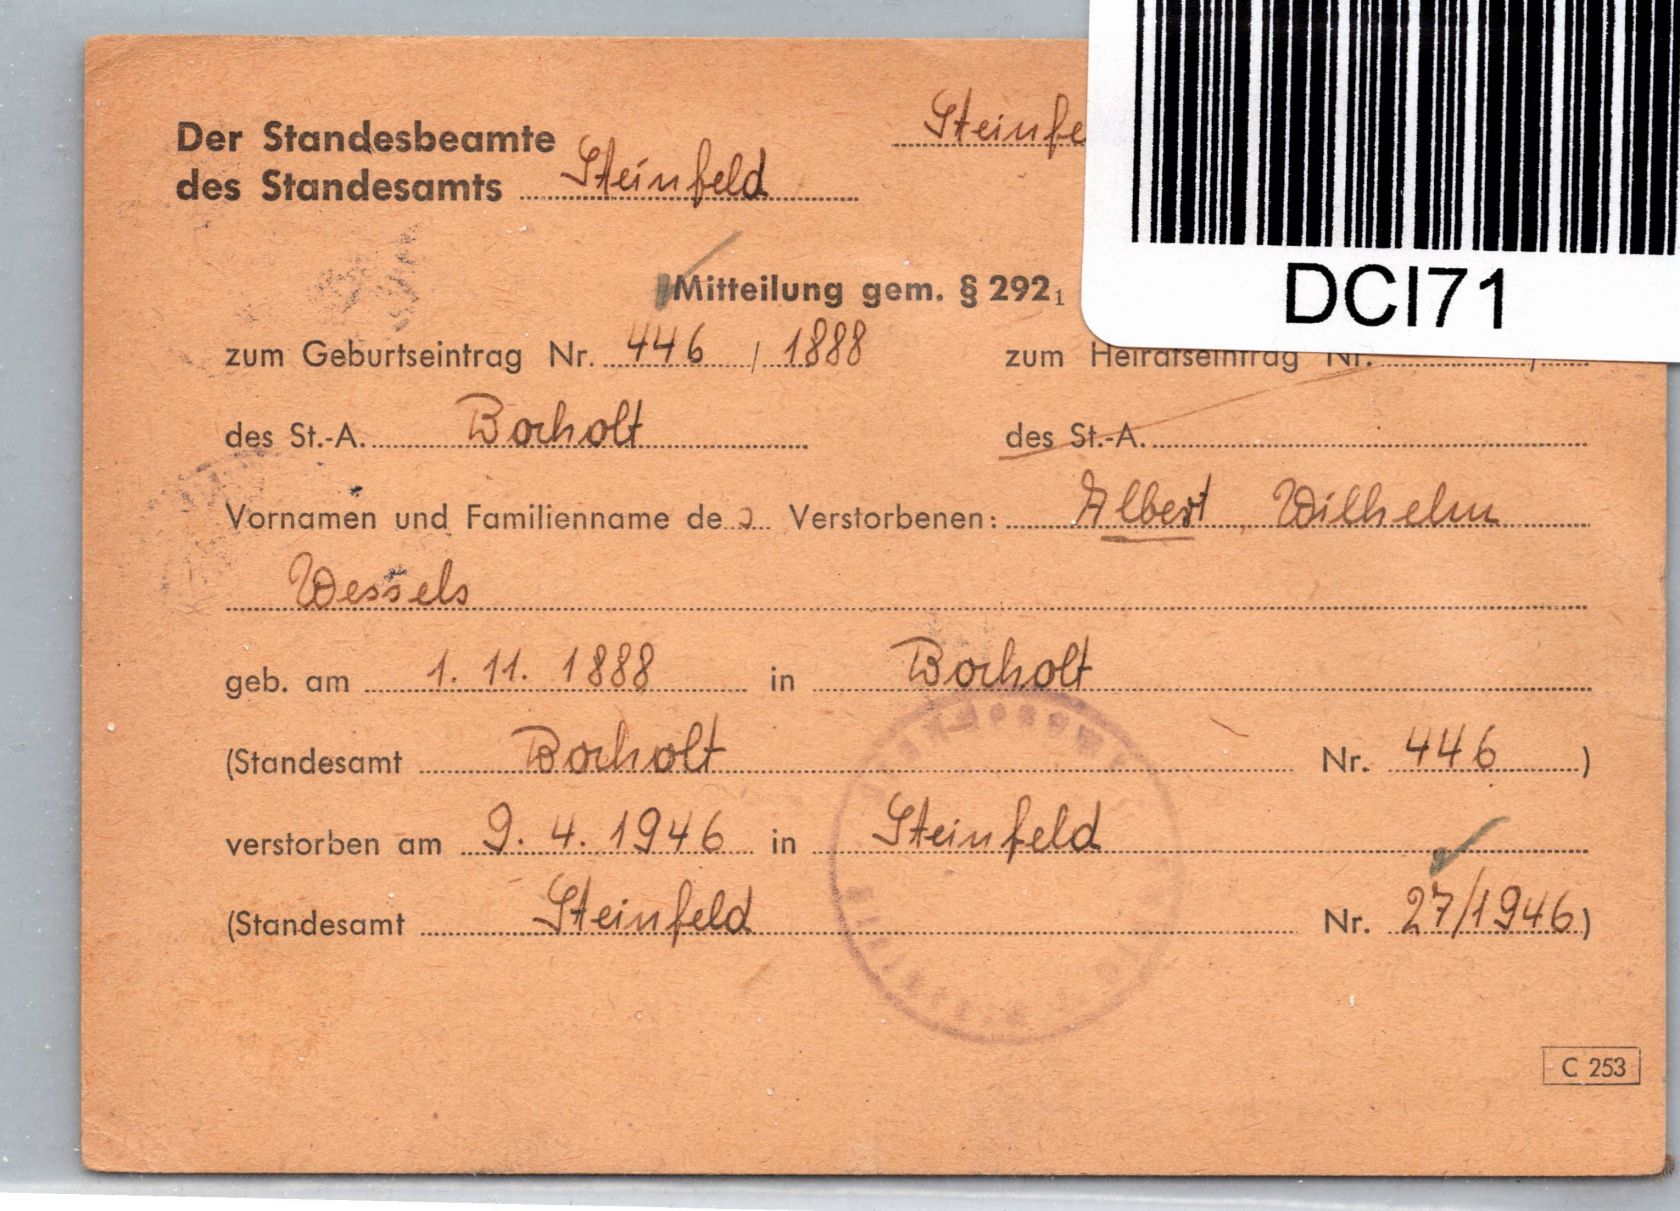 Der Standesbeamte
des Standesamts Steinfeld
Steinfe
DCI71
Mitteilung gem. § 292₁
zum Geburtseintrag Nr. 446 / 1888 zum Heiratseintrag Nr. /
des St.-A. Bocholt des St.-A.
Vornamen und Familienname de s Verstorbenen: Albert, Wilhelm
Wessels
geb. am 1. 11. 1888 in Bocholt
(Standesamt Bocholt Nr. 446 )
verstorben am 9. 4. 1946 in Steinfeld
(Standesamt Steinfeld Nr. 27/1946)
C 253